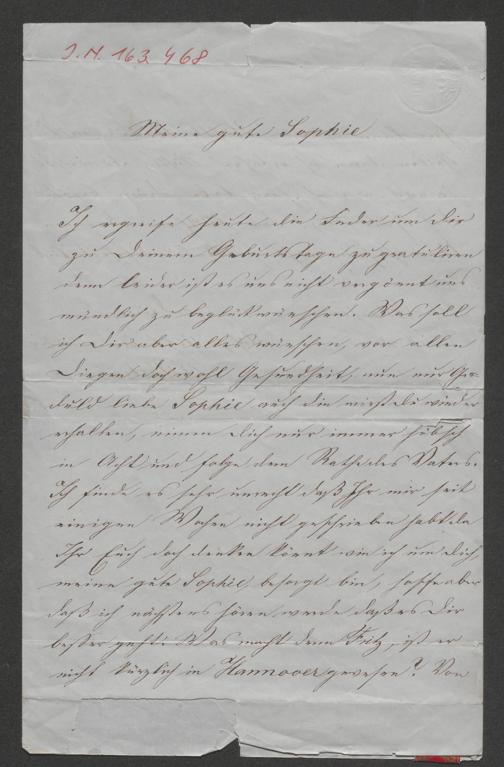 J.N. 163.468
Meine gute Sophie
Ich ergreife heute die Feder um Dir
zu Deinem Geburtstage zu gratuliren
denn leider ist es uns nicht vergönnt uns
mündlich zu beglückwünschen. Was soll
ich Dir aber alles wünschen, vor allen
Diegen doch wohl Gesundheit, nun nur Ge-
duld liebe Sophie auch die wirst du wieder
erhalten, nimm Dich nur immer hübsch
in Acht und folge dem Rathe des Vaters.
Ich finde es sehr unrecht daß Ihr mir seit
einigen Wochen nicht geschrieben habt da
Ihr Euch doch denken könnt wie ich um Dich
meine gute Sophie besorgt bin, hoffe aber
daß ich nächstens hören werde daß es Dir
besser geht. Was macht denn Fritz, ist er
nicht kürzlich in Hannover gewesen? Von